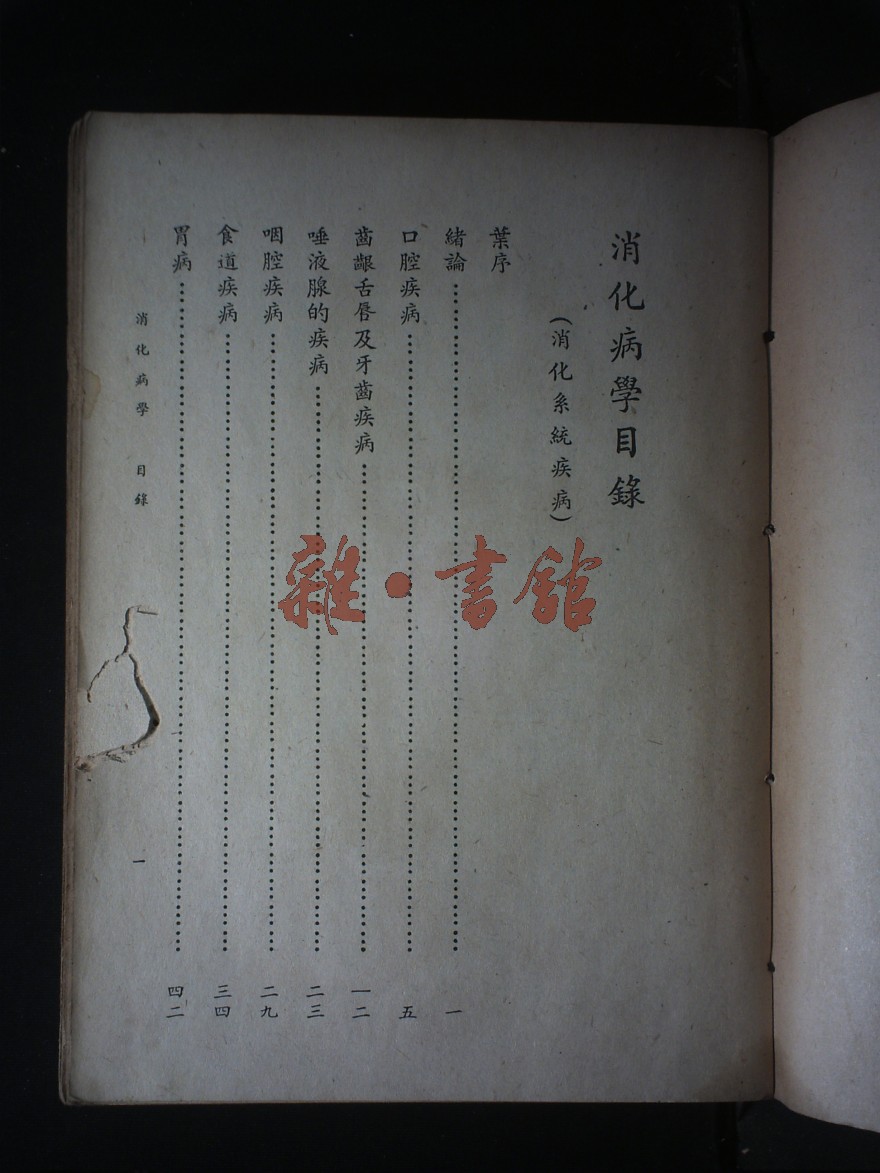 消化病學目錄
（消化系統疾病）
葉序
緒論……………………一
口腔疾病……………………五
齒齦舌唇及牙齒疾病……………………一二
唾液腺的疾病……………………二三
咽腔疾病……………………二九
食道疾病……………………三四
胃病……………………四二
消化病學 目錄 一
雜·書館